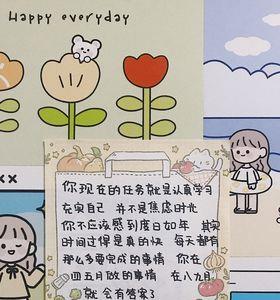 Happy everyday
你现在的任务就是认真学习
充实自己 并不是焦虑时代
你不应该感到度日如年 其实
时间过得是真的快 每天都有
那么多要完成的事情 你在
四五月做的事情 在八九月
就会有答案了
xx